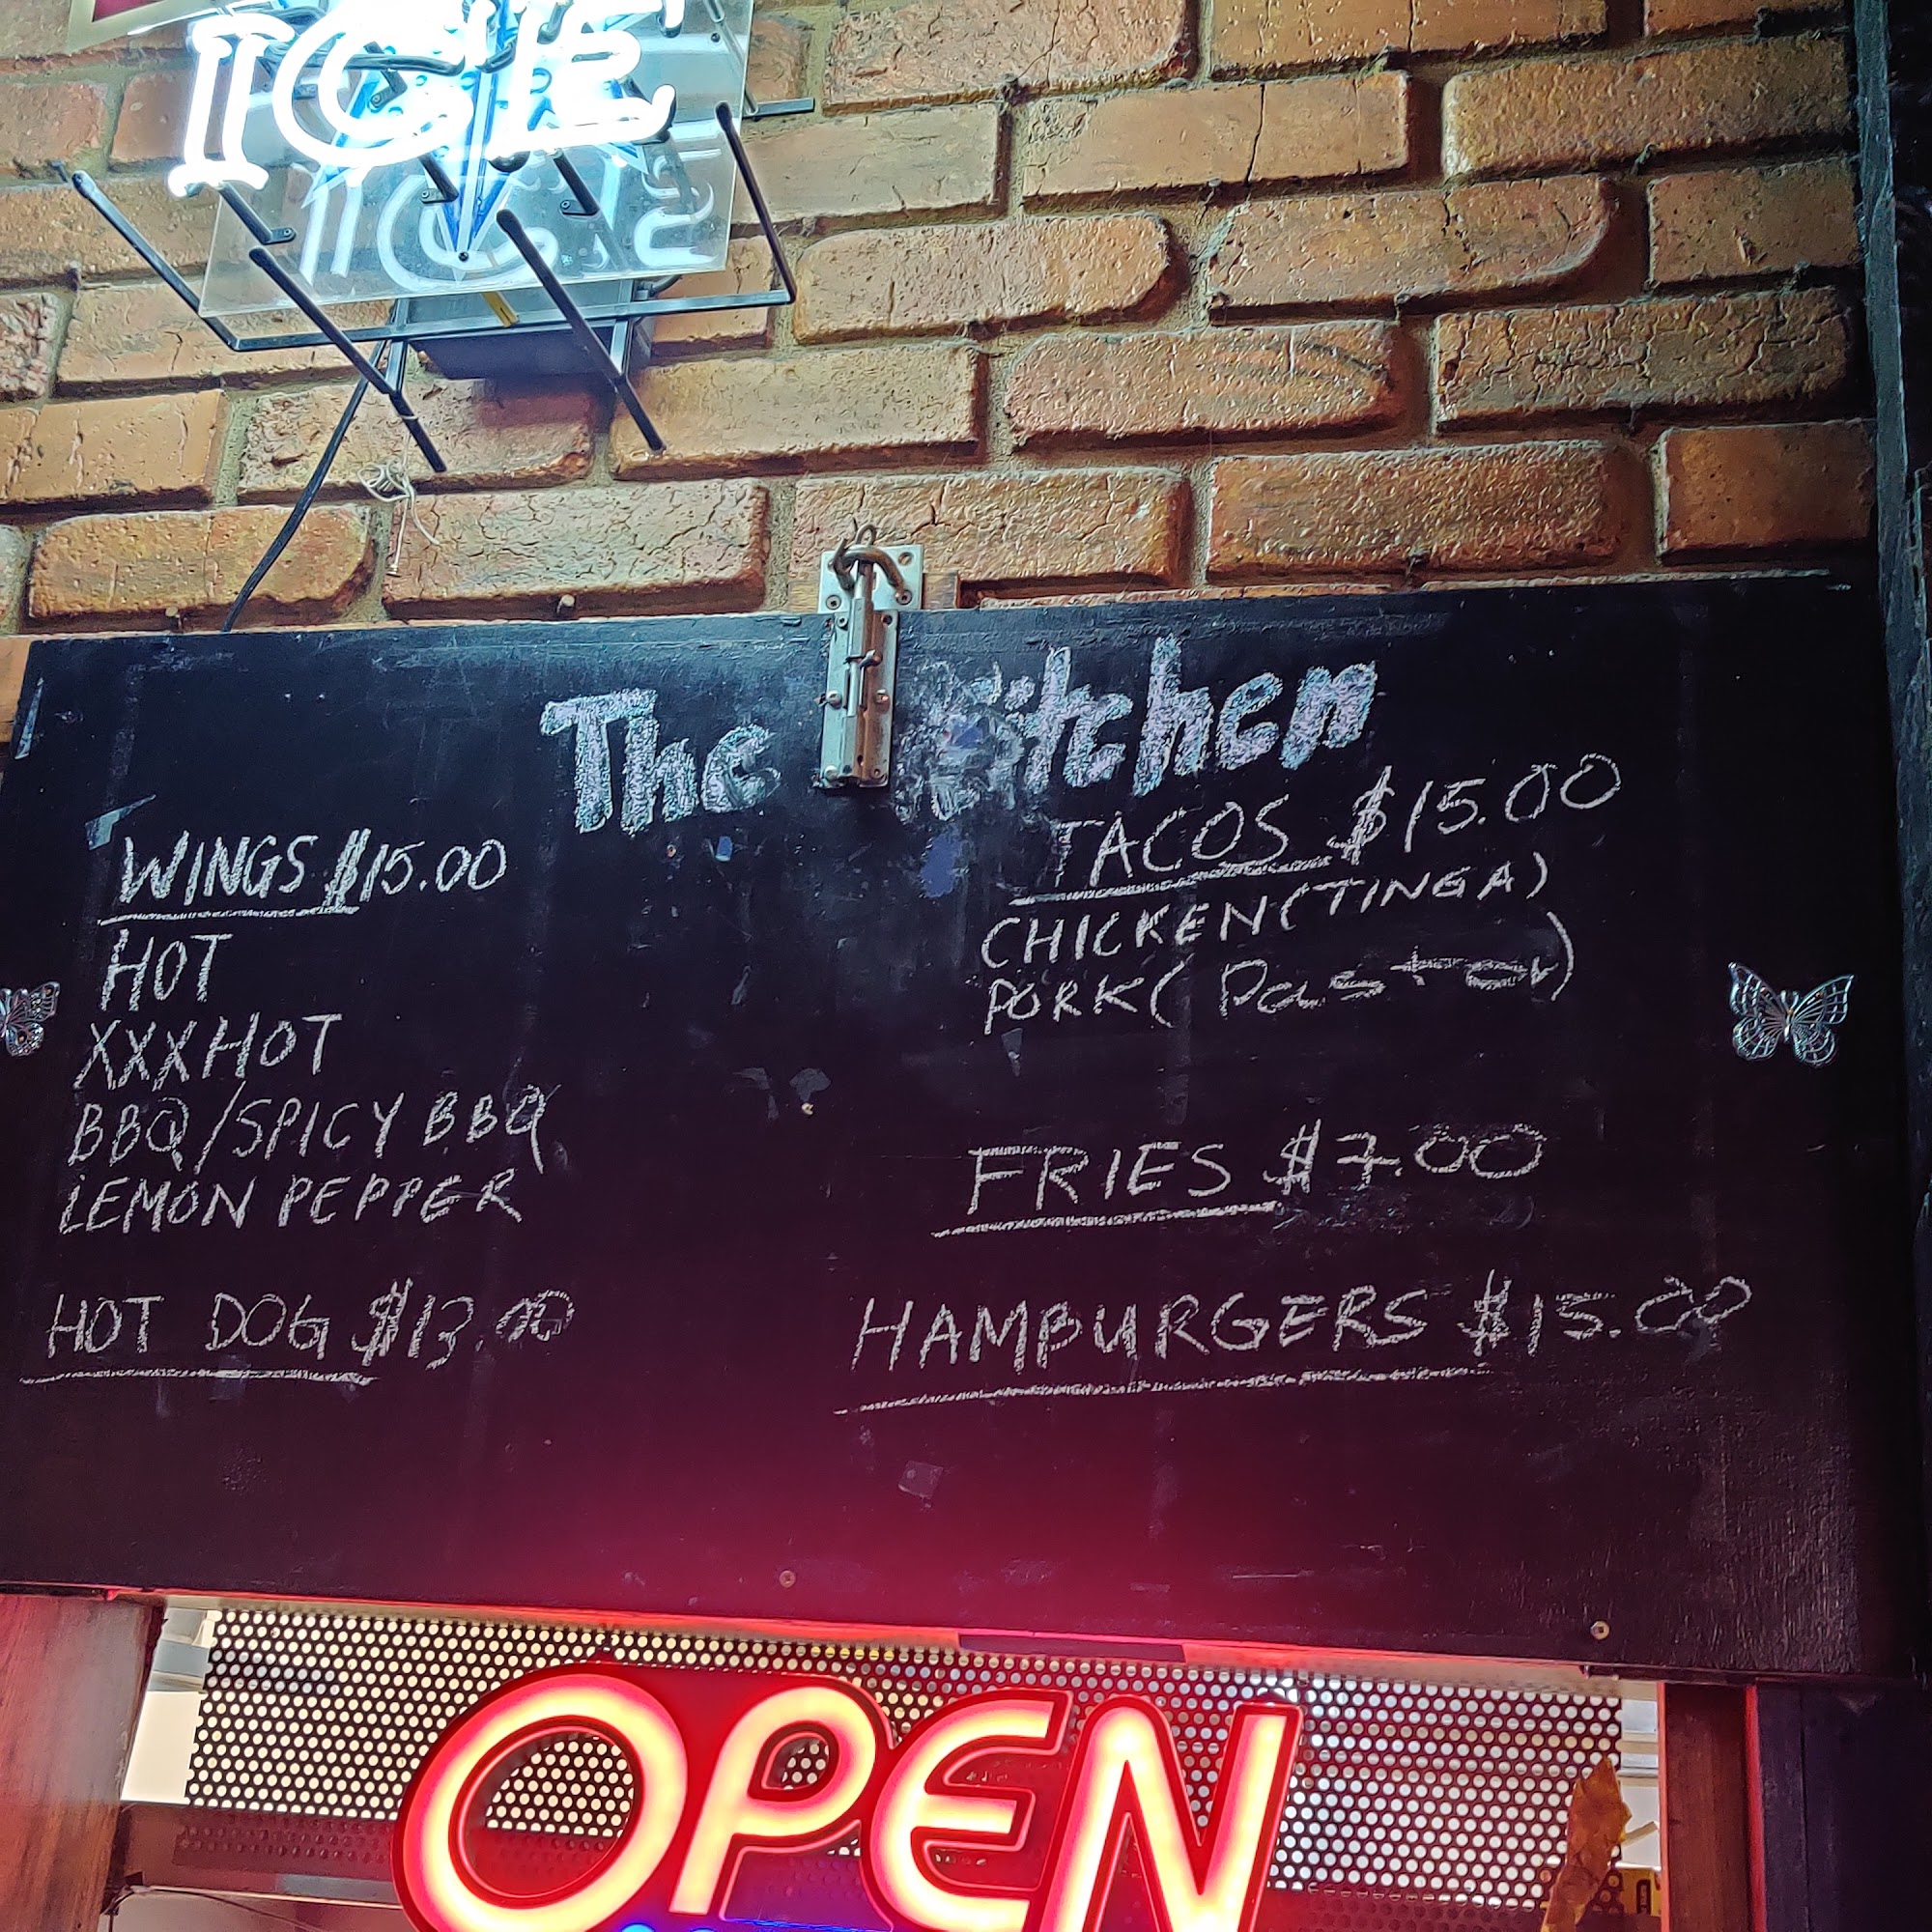 ICE
The Kitchen
WINGS $15.00
HOT
XXXHOT
BBQ/SPICY BBQ
LEMON PEPPER
HOT DOG $13.00
TACOS $15.00
CHICKEN(TINGA)
PORK(Pastor)
FRIES $7.00
HAMBURGERS $15.00
OPEN